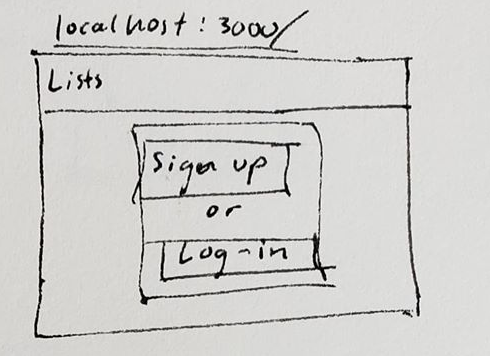 localhost:3000/
Lists
Sign up
or
Log-in